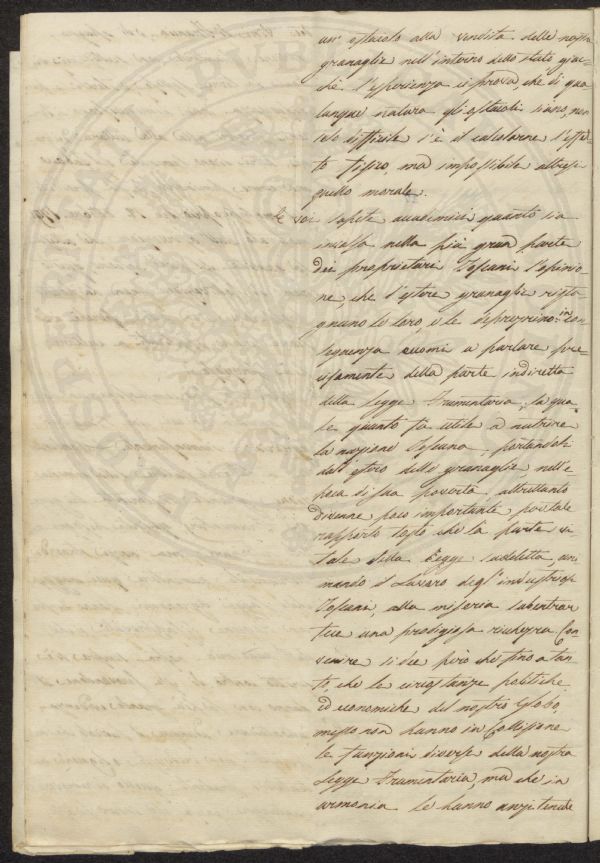 un' ostacolo alla vendita delle nostre
granaglie nell'interno dello stato, giac-
chè l'esperienza ci prova, che di qua-
lunque natura gli ostacoli siano, non
solo difficile s'è il calcolarne l'effet-
to fisico, ma impossibile altresì
quello morale.
E voi sapete accademici quanto sia
invalsa nella più gran parte
dei proprietari Toscani l'opinio-
ne, che l'estere granaglie rista-
gnano le loro, e le deprezzino: in con-
seguenza eccomi a parlare pre-
cisamente della parte indiretta
della Legge Frumentaria, la qua-
le quanto fu utile a nutrire
la nazione Toscana, portandoli
dall'estero delle granaglie, nell'e-
poca di sua povertà, altrettanto
divenne poco importante per tale
rapporto tosto che la parte vi-
tale della Legge suddetta, ani-
mando il Lavoro degl'industriosi
Toscani, alla miseria subentrar
fece una prodigiosa ricchezza. Con-
venire si dee però che fino a tan-
to, che le circostanze politiche
ed economiche del nostro Globo,
messo non hanno in Collisione
le funzioni diverse della nostra
Legge Frumentaria, ma che in
armonia le hanno anzi tenute